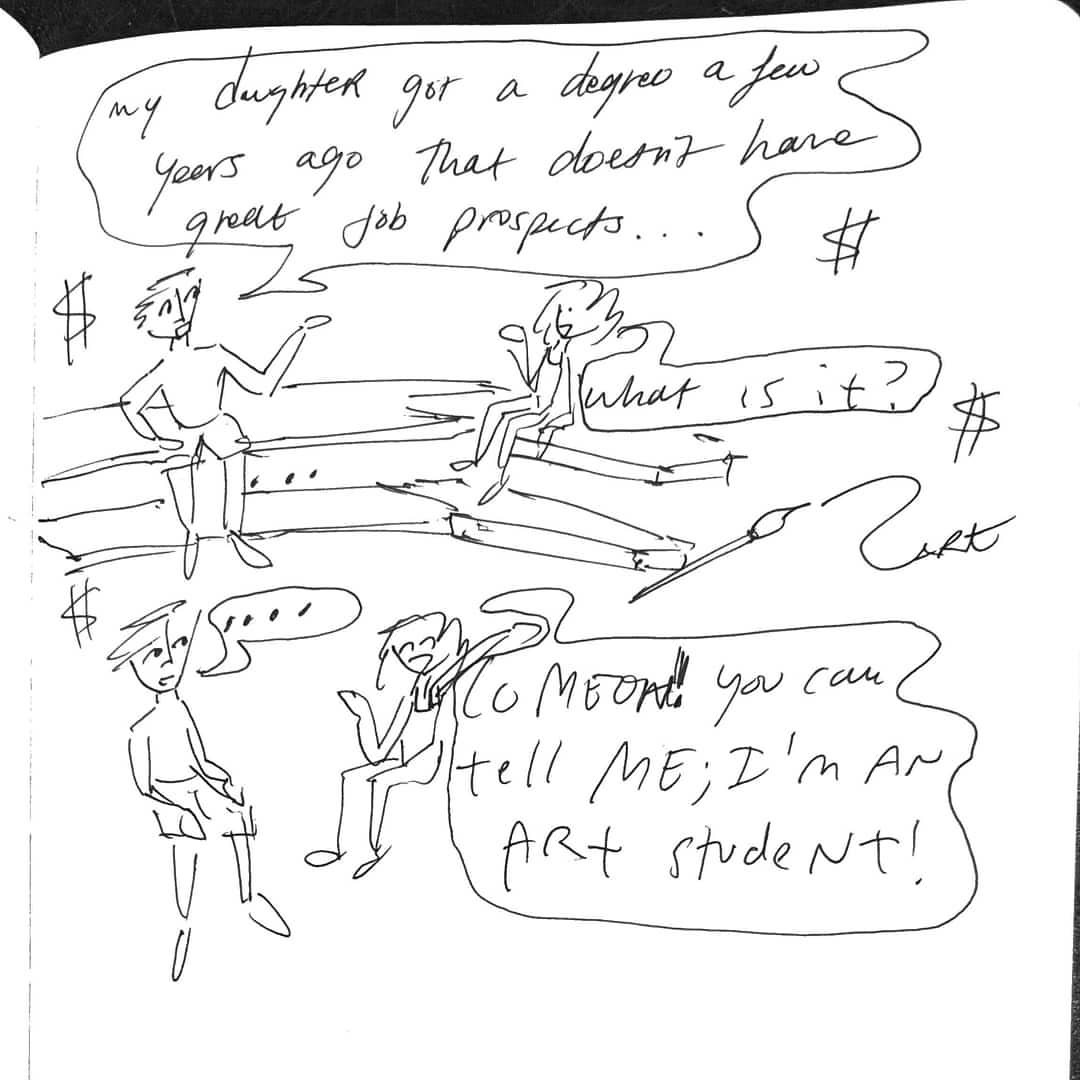 my daughter got a degree a few
years ago that doesn't have
great job prospects...
$
$
what is it?
$
...
ART
$
....
COMEON!! you can
tell ME; I'm AN
ARt studeNT!